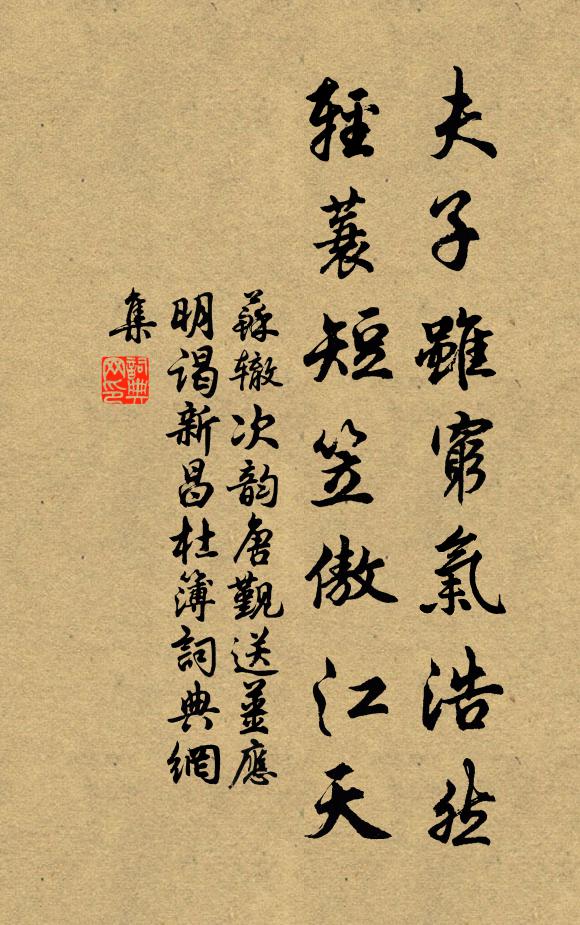 夫子雖窮氣浩然
輕蓑短笠傲江天
蘇辙次韵唐觐送薑應
明謁新昌杜簿詞典網
集
詞典
网印